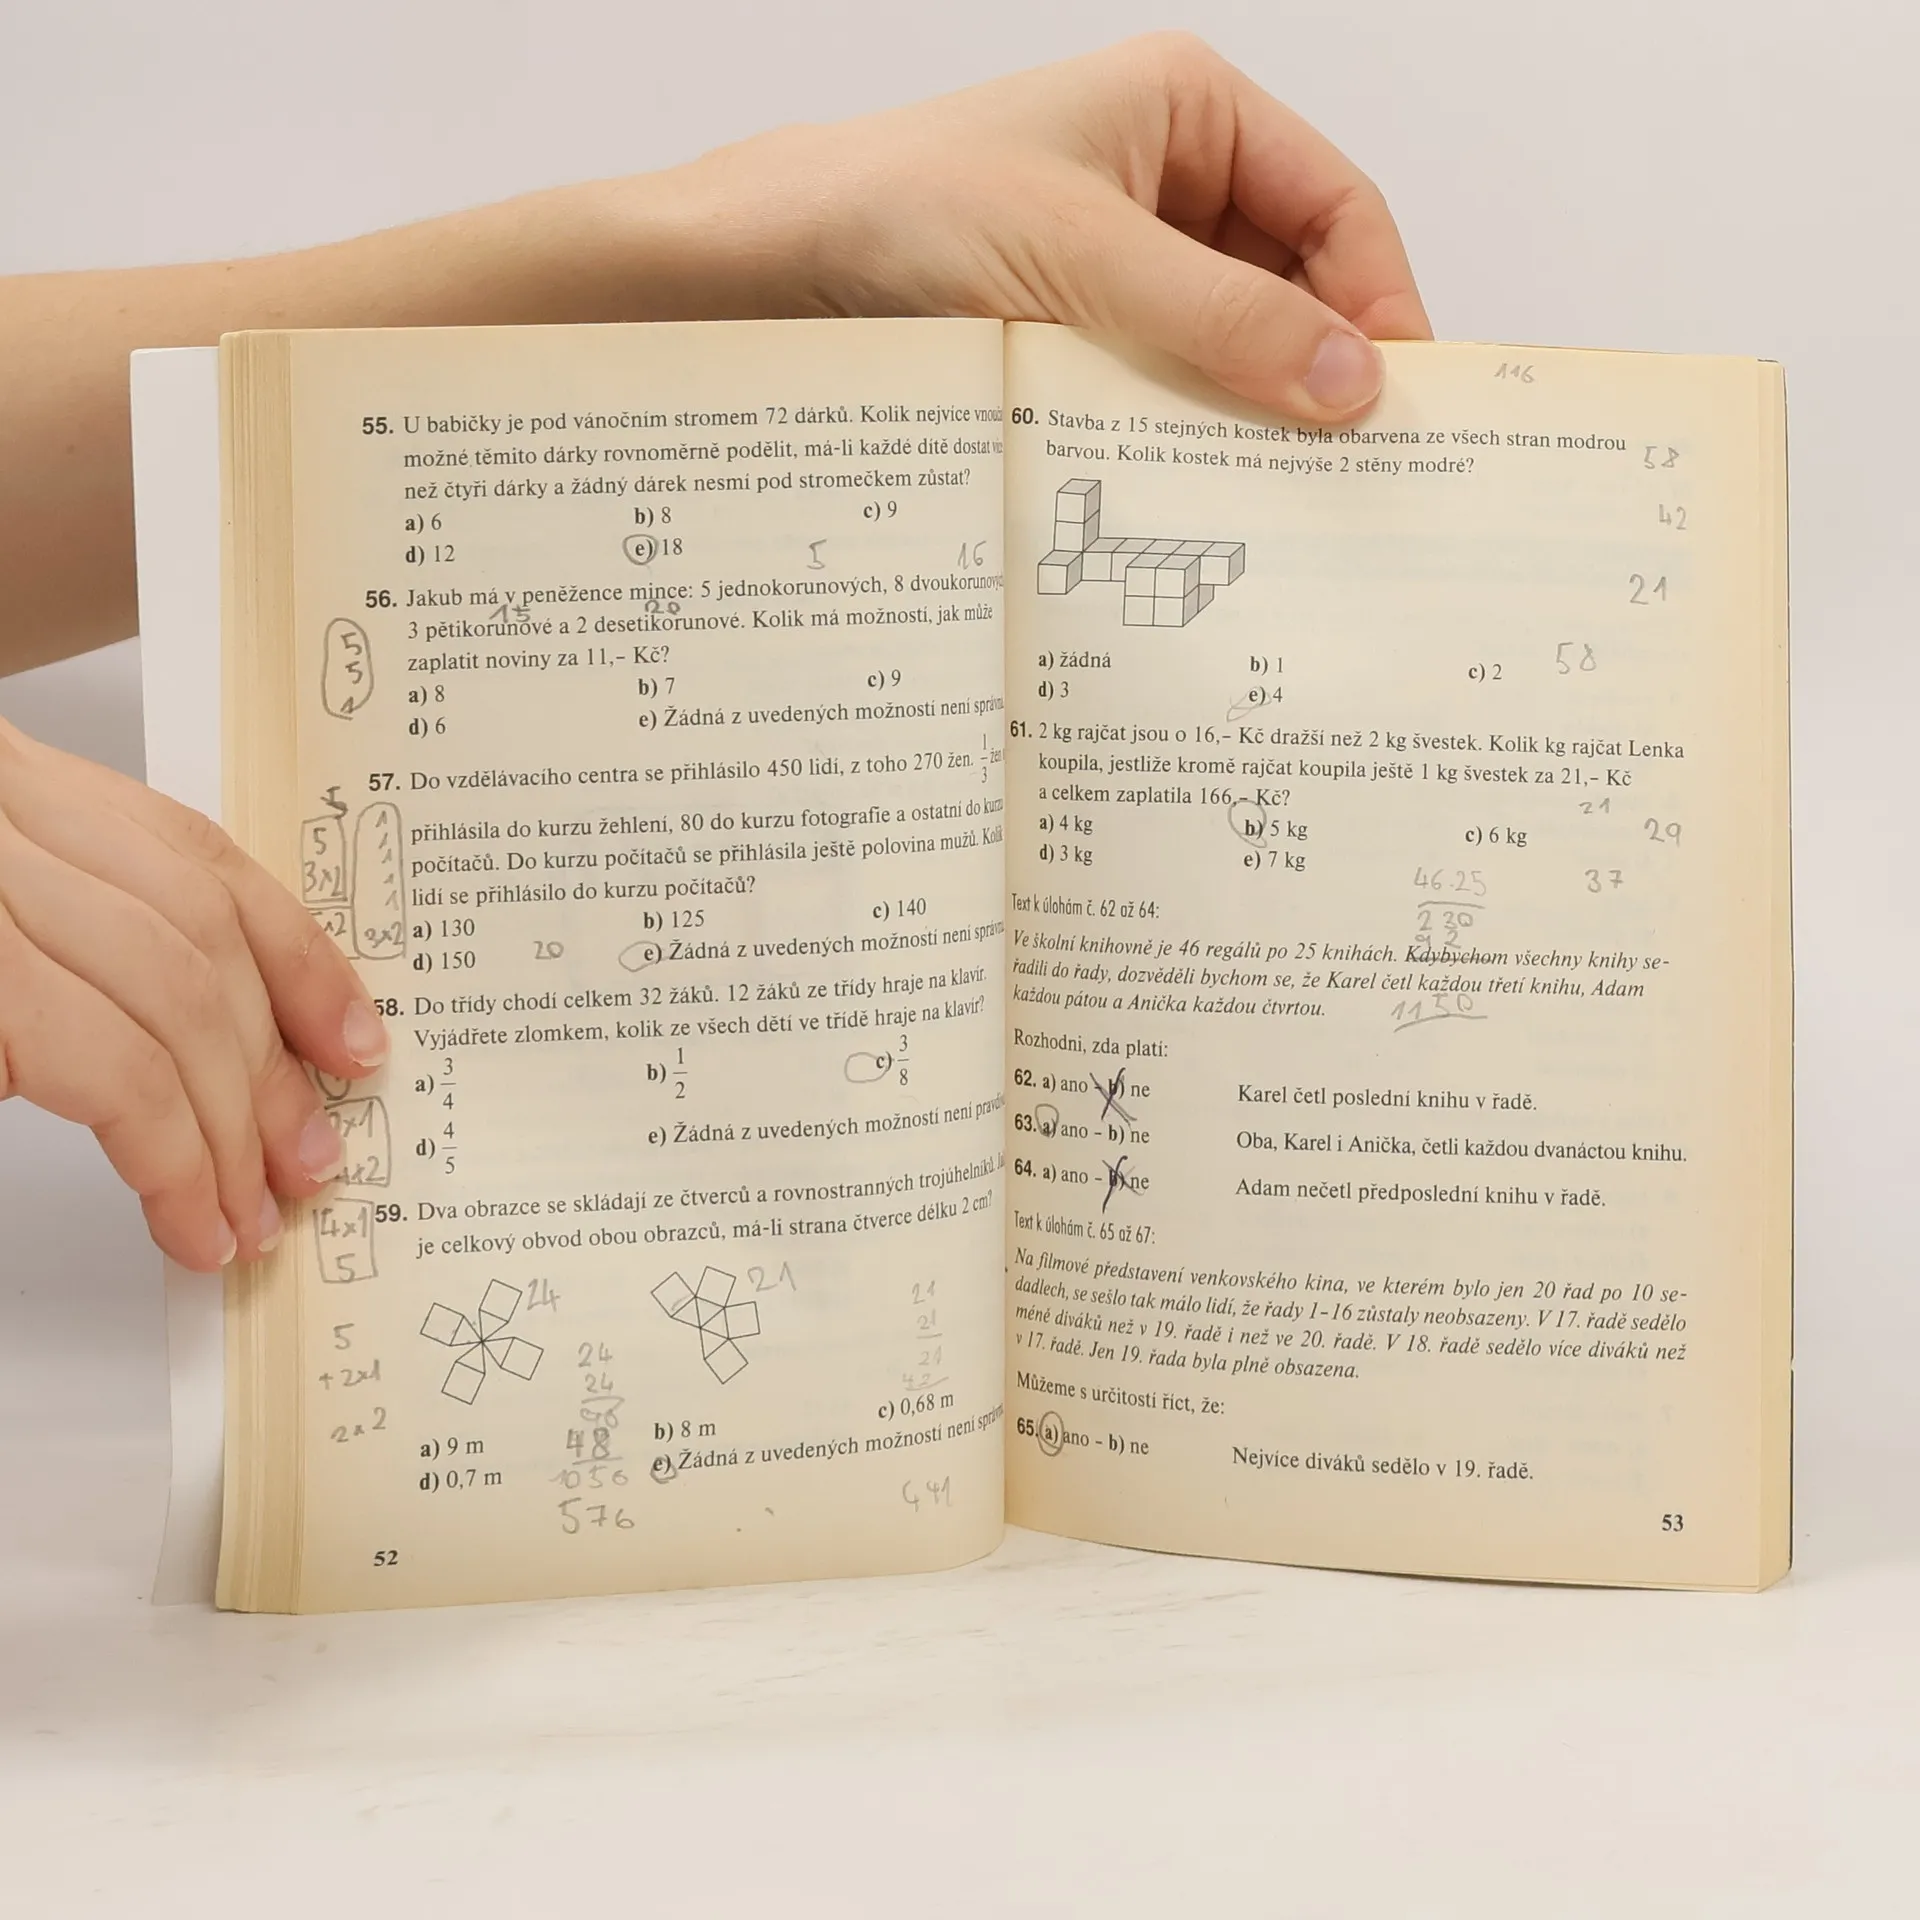 55. U babičky je pod vánočním stromem 72 dárků. Kolik nejvíce
možné těmito dárky rovnoměrně podělit, má-li každé dítě dostat
než čtyři dárky a žádný dárek nesmí pod stromečkem zůstat?
a) 6 b) 8 c) 9
d) 12 e) 18
5 16
56. Jakub má v peněžence mince: 5 jednokorunových, 8 dvoukorunových
15 20
3 pětikorunové a 2 desetikorunové. Kolik má možností, jak může
zaplatit noviny za 11,– Kč?
a) 8 b) 7 c) 9
d) 6 e) Žádná z uvedených možností není
5
5
1
57. Do vzdělávacího centra se přihlásilo 450 lidí, z toho 270 žen. 1/3 žen
přihlásila do kurzu žehlení, 80 do kurzu fotografie a ostatní do kurzu
počítačů. Do kurzu počítačů se přihlásila ještě polovina mužů. Kolik
lidí se přihlásilo do kurzu počítačů?
a) 130 b) 125 c) 140
d) 150 20 e) Žádná z uvedených možností není
5
5
3x2
1
1
1
1
1
3x2
58. Do třídy chodí celkem 32 žáků. 12 žáků ze třídy hraje na klavír.
Vyjádřete zlomkem, kolik ze všech dětí ve třídě hraje na klavír?
a) 3/4 b) 1/2 c) 3/8
d) 4/5 e) Žádná z uvedených možností není
59. Dva obrazce se skládají ze čtverců a rovnostranných trojúhelníků.
je celkový obvod obou obrazců, má-li strana čtverce délku 2 cm?
4x1
5
24 21
5
+ 2x1
2x2
24
24
48
576
21
21
21
42
441
a) 9 m b) 8 m c) 0,68 m
d) 0,7 m e) Žádná z uvedených možností není
52
116
60. Stavba z 15 stejných kostek byla obarvena ze všech stran modrou
barvou. Kolik kostek má nejvýše 2 stěny modré?
58
42
21
58
a) žádná b) 1 c) 2
d) 3 e) 4
61. 2 kg rajčat jsou o 16,– Kč dražší než 2 kg švestek. Kolik kg rajčat Lenka
koupila, jestliže kromě rajčat koupila ještě 1 kg švestek za 21,– Kč
a celkem zaplatila 166,– Kč?
21
29
37
a) 4 kg b) 5 kg c) 6 kg
d) 3 kg e) 7 kg
46.25
230
92
1150
Text k úlohám č. 62 až 64:
Ve školní knihovně je 46 regálů po 25 knihách. Kdybychom všechny knihy se-
řadili do řady, dozvěděli bychom se, že Karel četl každou třetí knihu, Adam
každou pátou a Anička každou čtvrtou.
Rozhodni, zda platí:
62. a) ano – b) ne Karel četl poslední knihu v řadě.
63. a) ano – b) ne Oba, Karel i Anička, četli každou dvanáctou knihu.
64. a) ano – b) ne Adam nečetl předposlední knihu v řadě.
Text k úlohám č. 65 až 67:
Na filmové představení venkovského kina, ve kterém bylo jen 20 řad po 10 se-
dadlech, se sešlo tak málo lidí, že řady 1–16 zůstaly neobsazeny. V 17. řadě sedělo
méně diváků než v 19. řadě i než ve 20. řadě. V 18. řadě sedělo více diváků než
v 17. řadě. Jen 19. řada byla plně obsazena.
Můžeme s určitostí říct, že:
65. a) ano – b) ne Nejvíce diváků sedělo v 19. řadě.
53